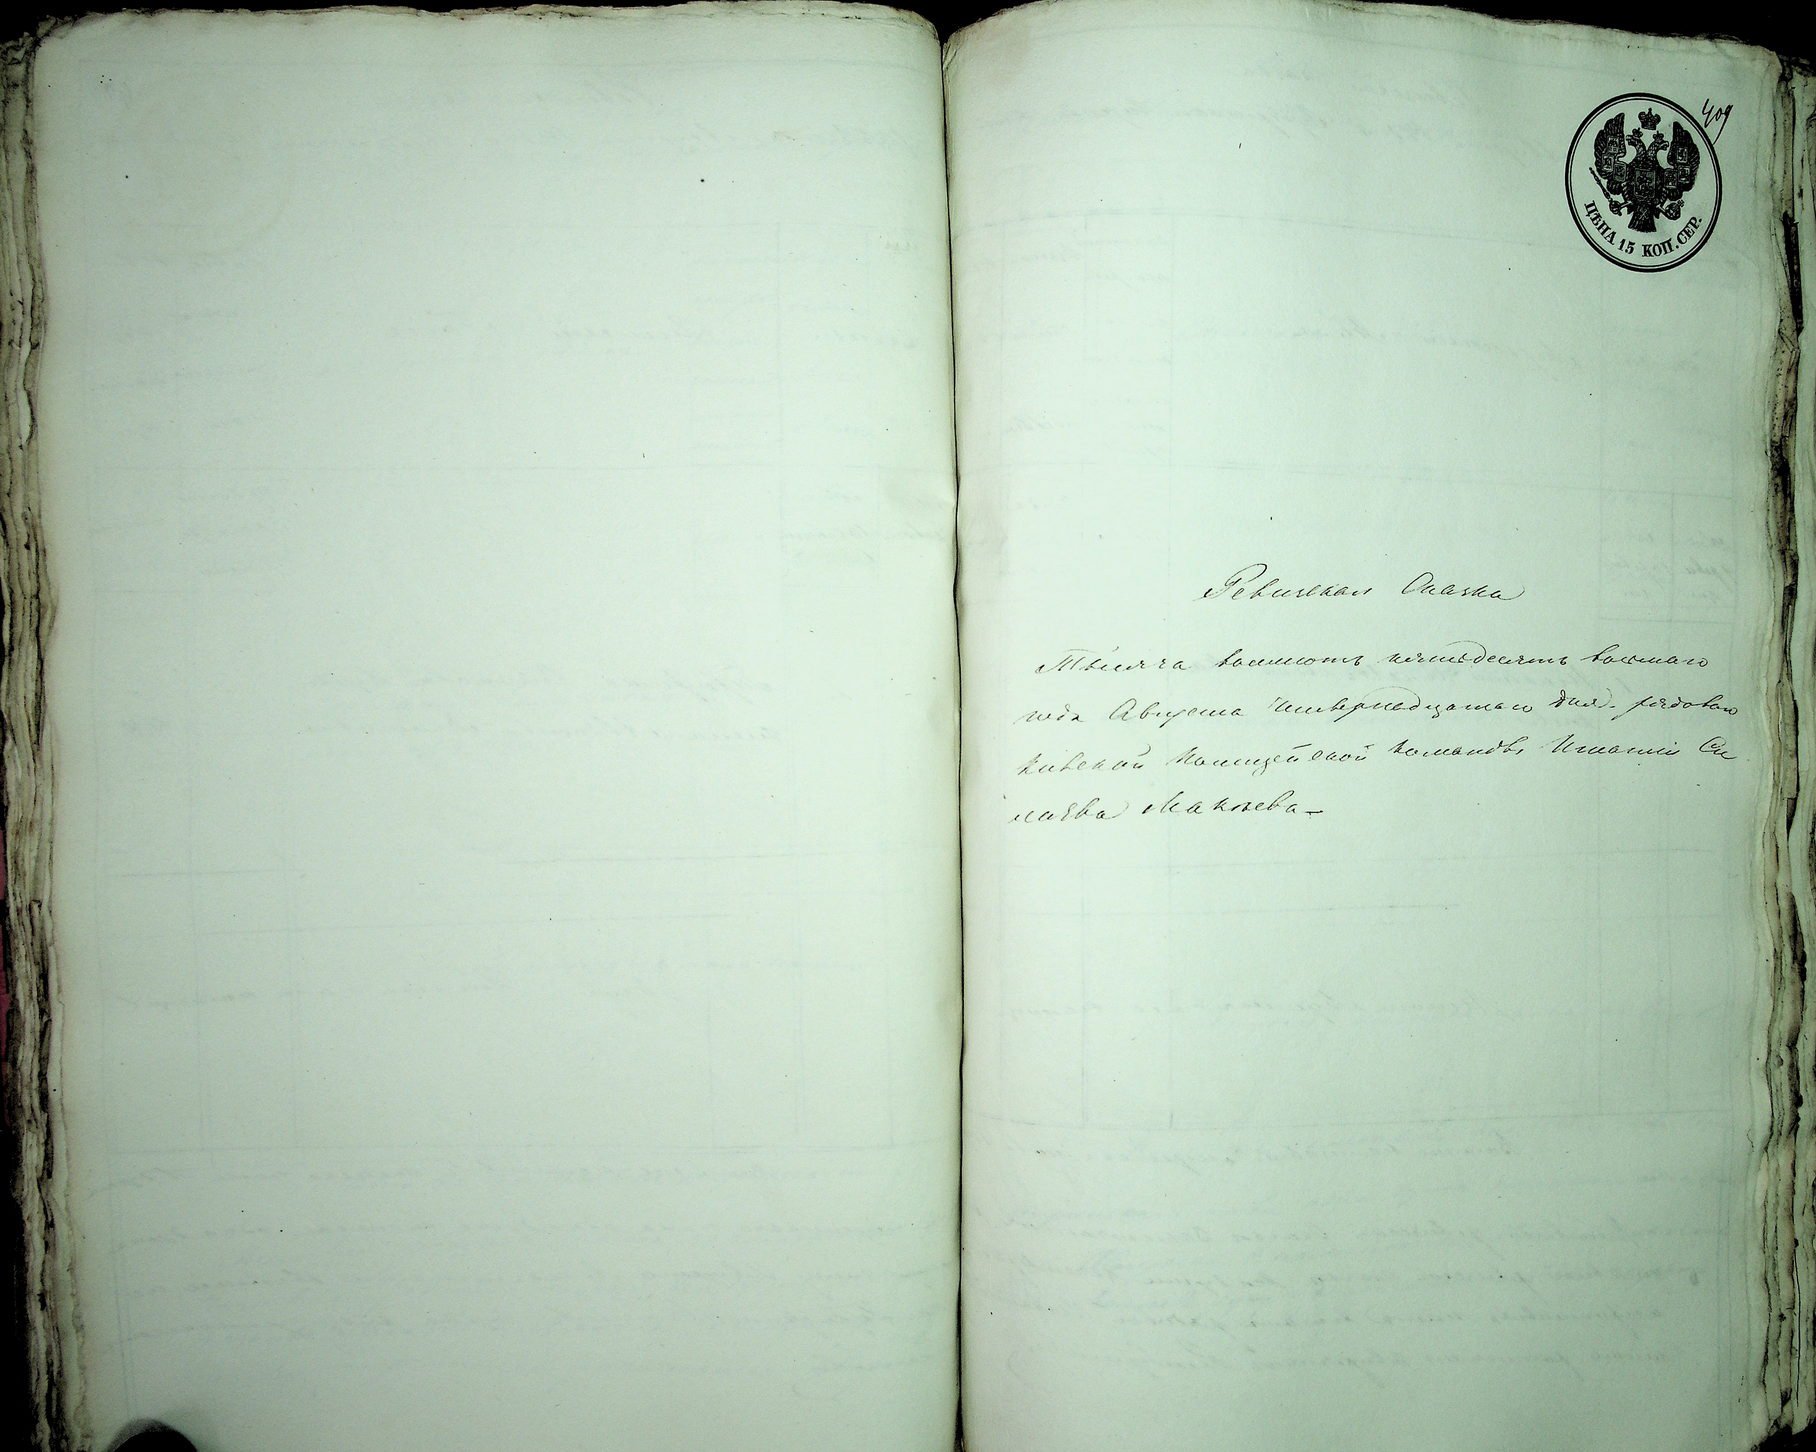 409
ЦѢНА 15 КОП. СЕР.
Ревизская Сказка
Тысяча восемсотъ пятьдесятъ восмаго
года Августа Четвернадцатаго дня. рядоваго
Полицейской Команды Игнатія Си
лаева Макѣева